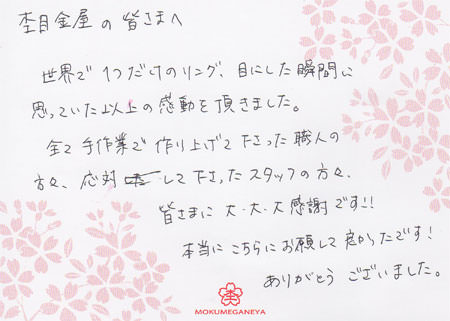 杢目金屋の皆さまへ
世界で1つだけのリング、目にした瞬間に
思っていた以上の感動を頂きました。
全て手作業で作り上げて下さった職人の
方々、応対して下さったスタッフの方々、
皆さまに大・大・大感謝です!!
本当にこちらにお願して良かったです!
ありがとうございました。
MOKUMEGANEYA